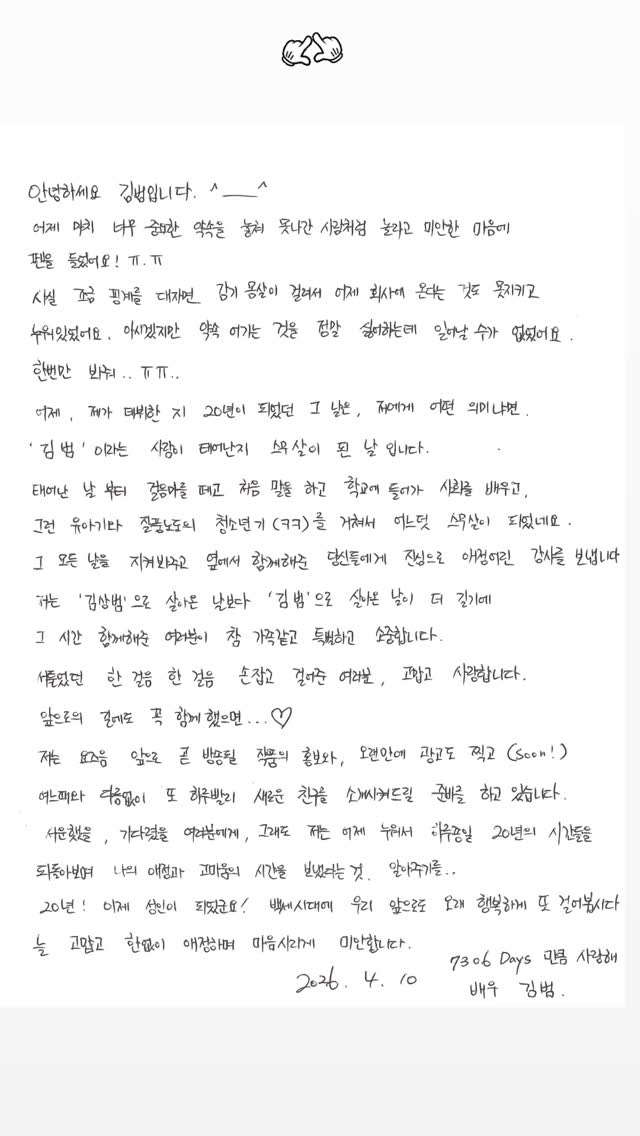 안녕하세요 김범입니다. ^___^
어제 마치 너무 중요한 약속을 놓쳐 못나간 사람처럼 놀라고 미안한 마음에
펜을 들었어요! ㅠ.ㅠ
사실 조금 핑계를 대자면 감기 몸살이 걸려서 어제 회사에 온다는 것도 못지키고
누워있었어요. 아시겠지만 약속 어기는 것을 정말 싫어하는데 일어날 수가 없었어요.
한번만 봐줘.. ㅠㅠ..
어제, 제가 데뷔한 지 20년이 되었던 그 날은, 저에게 어떤 의미냐면.
'김범' 이라는 사람이 태어난지 스무살이 된 날 입니다.
태어난 날 부터 걸음마를 떼고 처음 말을 하고 학교에 들어가 사회를 배우고,
그런 유아기와 질풍노도의 청소년기(ㅋㅋ)를 거쳐서 어느덧 스무살이 되었네요.
그 모든 날을 지켜봐주고 옆에서 함께해준 당신들에게 진심으로 애정어린 감사를 보냅니다
저는 '김상범'으로 살아온 날보다 '김범'으로 살아온 날이 더 길기에
그 시간 함께해준 여러분이 참 가족같고 특별하고 소중합니다.
서툴었던 한 걸음 한 걸음 손잡고 걸어준 여러분, 고맙고 사랑합니다.
앞으로의 길에도 꼭 함께 했으면...♡
저는 요즈음 앞으로 곧 방송될 작품의 홍보와, 오랜만에 광고도 찍고 (soon!)
여느때와 다름없이 또 하루빨리 새로운 친구를 소개시켜드릴 준비를 하고 있습니다.
서운했을, 기다렸을 여러분에게, 그래도 저는 어제 누워서 하루종일 20년의 시간들을
되돌아보며 나의 애정과 고마움의 시간을 보냈다는 것. 알아주기를..
20년! 이제 성인이 되었군요! 백세시대에 우리 앞으로도 오래 행복하게 또 걸어봅시다
늘 고맙고 한없이 애정하며 마음시리게 미안합니다.
2026. 4. 10
7306 Days 만큼 사랑해
배우 김범.